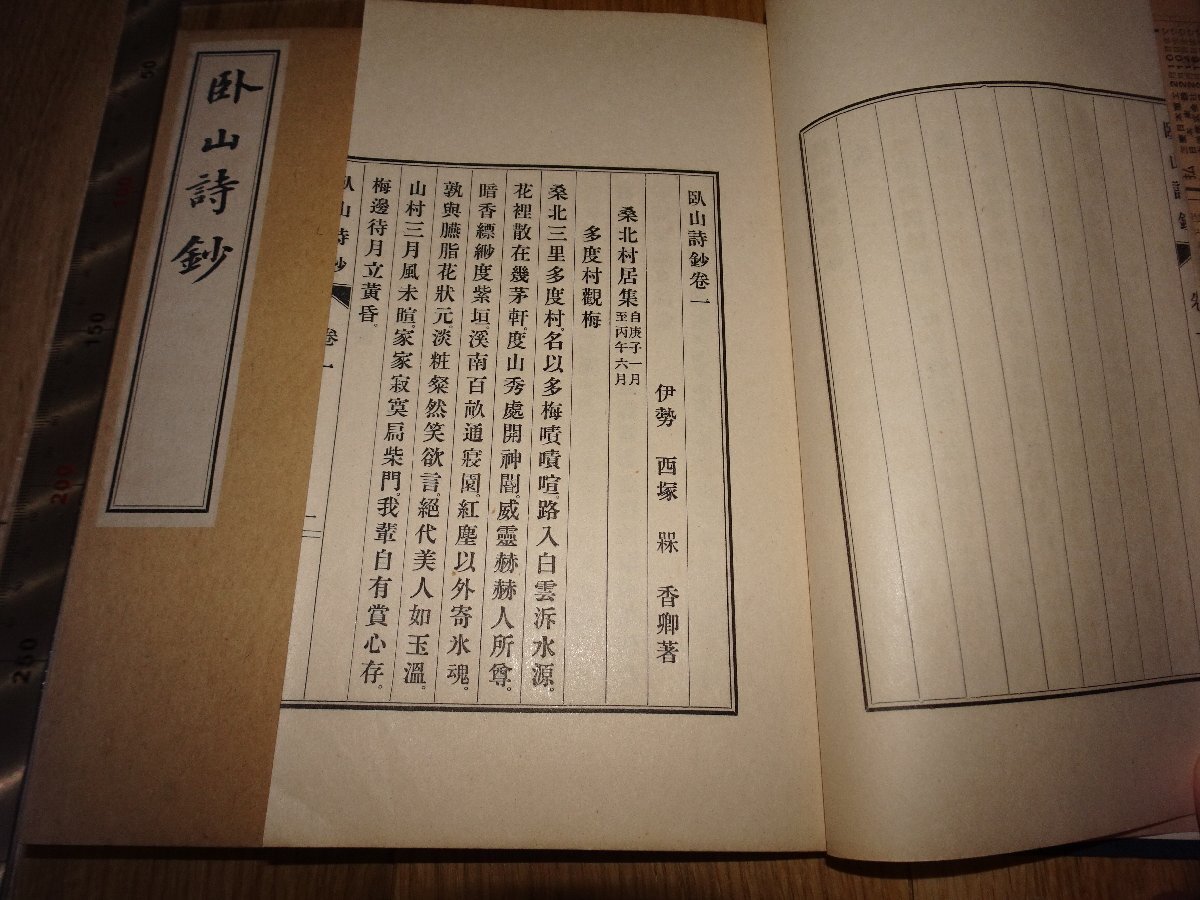 臥山詩鈔卷一
伊勢 西塚 香卿著
桑北村居集 自庚子一月 至丙午六月
多度村觀梅
桑北三里多度村。名以多梅嘖嘖喧。路入白雲泝水源。
花裡散在幾茅軒。度山秀處開神閽。威靈赫赫人所尊。
暗香縹緲度紫垣。溪南百畝通寢園。紅塵以外寄氷魂。
孰與臙脂花狀元。淡粧粲然笑欲言。絕代美人如玉溫。
山村三月風未暄。家家寂寞扃柴門。我輩自有賞心存。
梅邊待月立黃昏。
臥山詩鈔 卷一 一
卧山詩鈔
臥山詩鈔
50
150
200
250